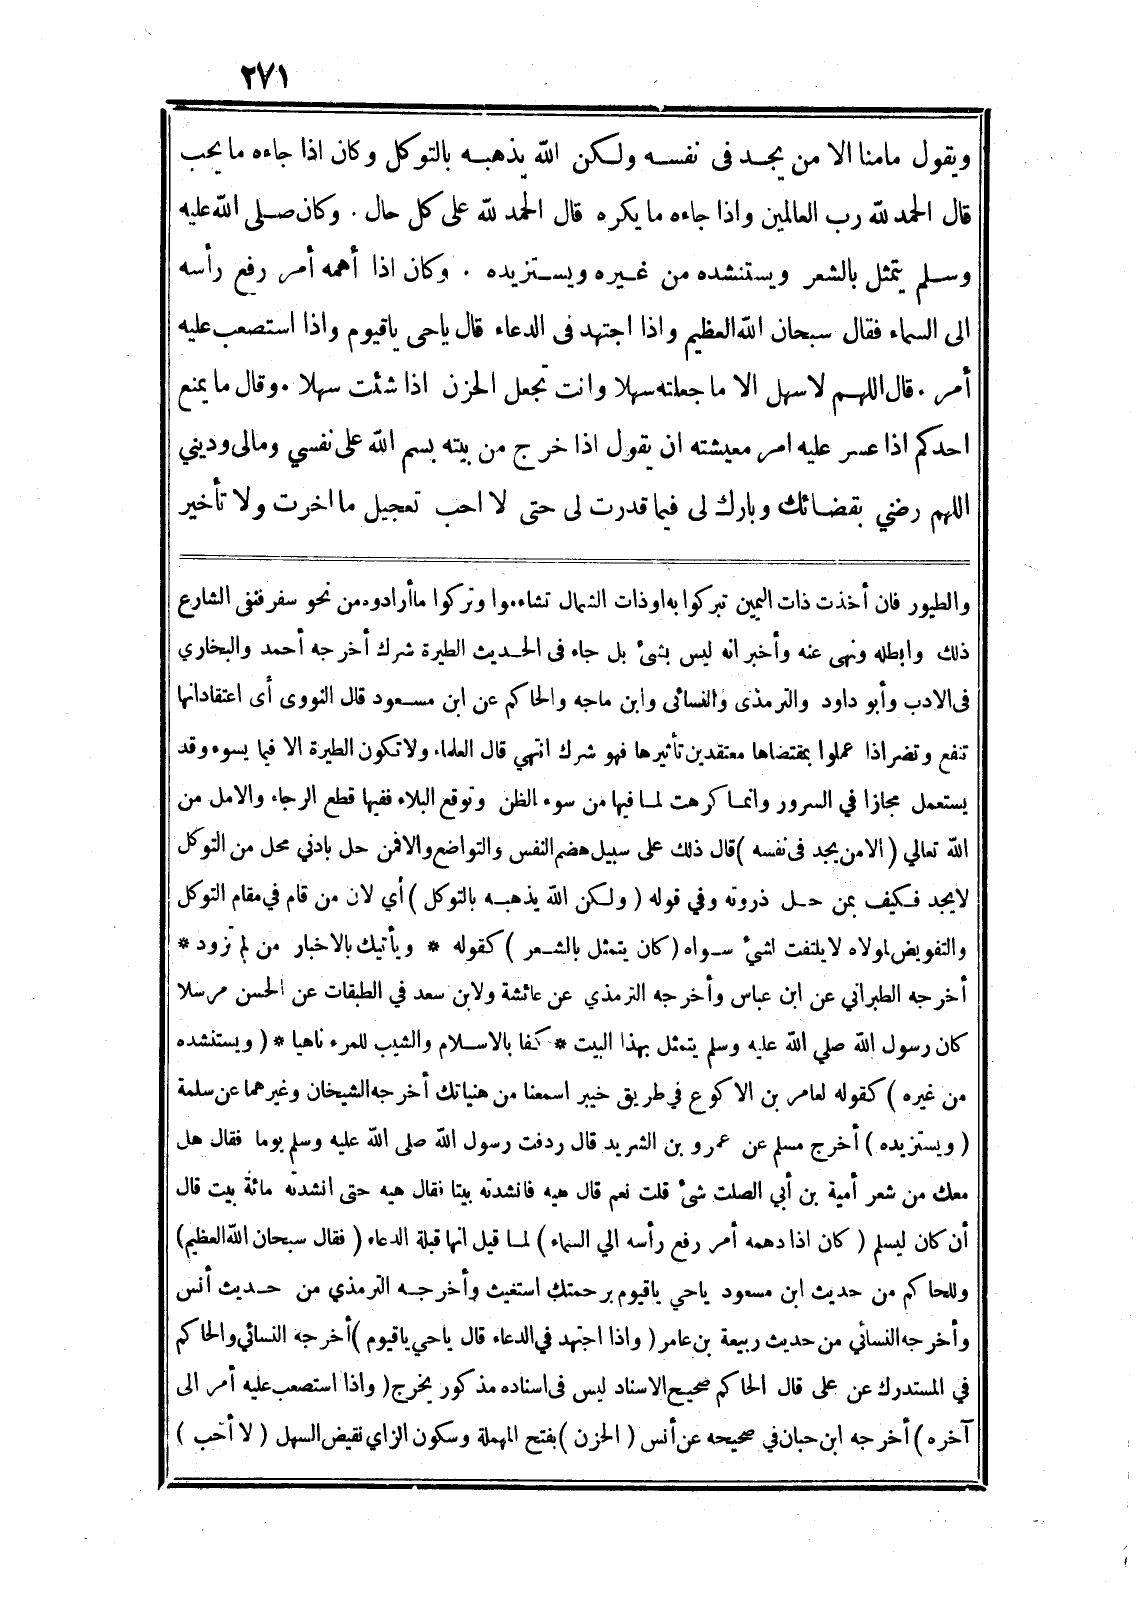 ٢٧١
ويقول مامنا الا من يجد فى نفسه ولكن الله يذهبه بالتوكل وكان اذا جاءه ما يحب
قال الحمد لله رب العالمين واذا جاءه ما يكره قال الحمد لله على كل حال . وكان صلى الله عليه
وسلم يتمثل بالشعر ويستنشده من غيره ويستزيده . وكان اذا أهمه أمر رفع رأسه
الى السماء فقال سبحان الله العظيم واذا اجتهد فى الدعاء قال ياحى ياقيوم واذا استصعب عليه
أمر . قال اللهم لا سهل الا ما جعلته سهلا وانت تجعل الحزن اذا شئت سهلا . وقال ما يمنع
احدكم اذا عسر عليه امر معيشته ان يقول اذا خرج من بيته بسم الله على نفسي ومالى وديني
اللهم رضني بقضائك وبارك لى فيما قدرت لى حتى لا احب تعجيل ما اخرت ولا تأخير
والطيور فان أخذت ذات اليمين تبركوا به اوذات الشمال تشاءموا وتركوا ما أرادوه من نحو سفر فنفى الشارع
ذلك وابطله ونهى عنه وأخبر انه ليس بشئ بل جاء فى الحديث الطيرة شرك أخرجه أحمد والبخاري
فى الادب وأبو داود والترمذى والنسائى وابن ماجه والحاكم عن ابن مسعود قال النووى أى اعتقادانها
تنفع وتضر اذا عملوا بمقتضاها معتقدين تأثيرها فهو شرك انتهي قال العلماء ولا تكون الطيرة الا فيما يسوء وقد
يستعمل مجازا في السرور وانما كرهت لما فيها من سوء الظن وتوقع البلاء ففيها قطع الرجاء والامل من
الله تعالي ( الامن يجد فى نفسه ) قال ذلك على سبيل هضم النفس والتواضع والافمن حل بادني محل من التوكل
لايجد فكيف بمن حل ذروته وفي قوله ( ولكن الله يذهبه بالتوكل ) أي لان من قام في مقام التوكل
والتفويض لمولاه لا يلتفت لشئ سواه ( كان يتمثل بالشعر ) كقوله * ويأتيك بالاخبار من لم تزود *
أخرجه الطبراني عن ابن عباس وأخرجه الترمذي عن عائشة ولابن سعد في الطبقات عن الحسن مرسلا
كان رسول الله صلي الله عليه وسلم يتمثل بهذا البيت * كفا بالاسلام والشيب للمرء ناهيا * ( ويستنشده
من غيره ) كقوله لعامر بن الاكوع في طريق خيبر اسمعنا من هنياتك أخرجه الشيخان وغيرهما عن سلمة
( ويستزيده ) أخرج مسلم عن عمرو بن الشريد قال ردفت رسول الله صلى الله عليه وسلم يوما فقال هل
معك من شعر أمية بن أبي الصلت شئ قلت نعم قال هيه فانشدته بيتا فقال هيه حتى انشدته مائة بيت قال
أن كان ليسلم ( كان اذا دهمه أمر رفع رأسه الي السماء ) لما قيل انها قبلة الدعاء ( فقال سبحان الله العظيم )
وللحاكم من حديث ابن مسعود ياحي ياقيوم برحمتك استغيث وأخرجه الترمذي من حديث أنس
وأخرجه النسائي من حديث ربيعة بن عامر ( واذا اجتهد في الدعاء قال ياحي ياقيوم ) أخرجه النسائي والحاكم
في المستدرك عن على قال الحاكم صحيح الاسناد ليس فى اسناده مذكور بجرح ( واذا استصعب عليه أمر الى
آخره ) أخرجه ابن حبان في صحيحه عن أنس ( الحزن ) بفتح المهملة وسكون الزاي نقيض السهل ( لا أحب )